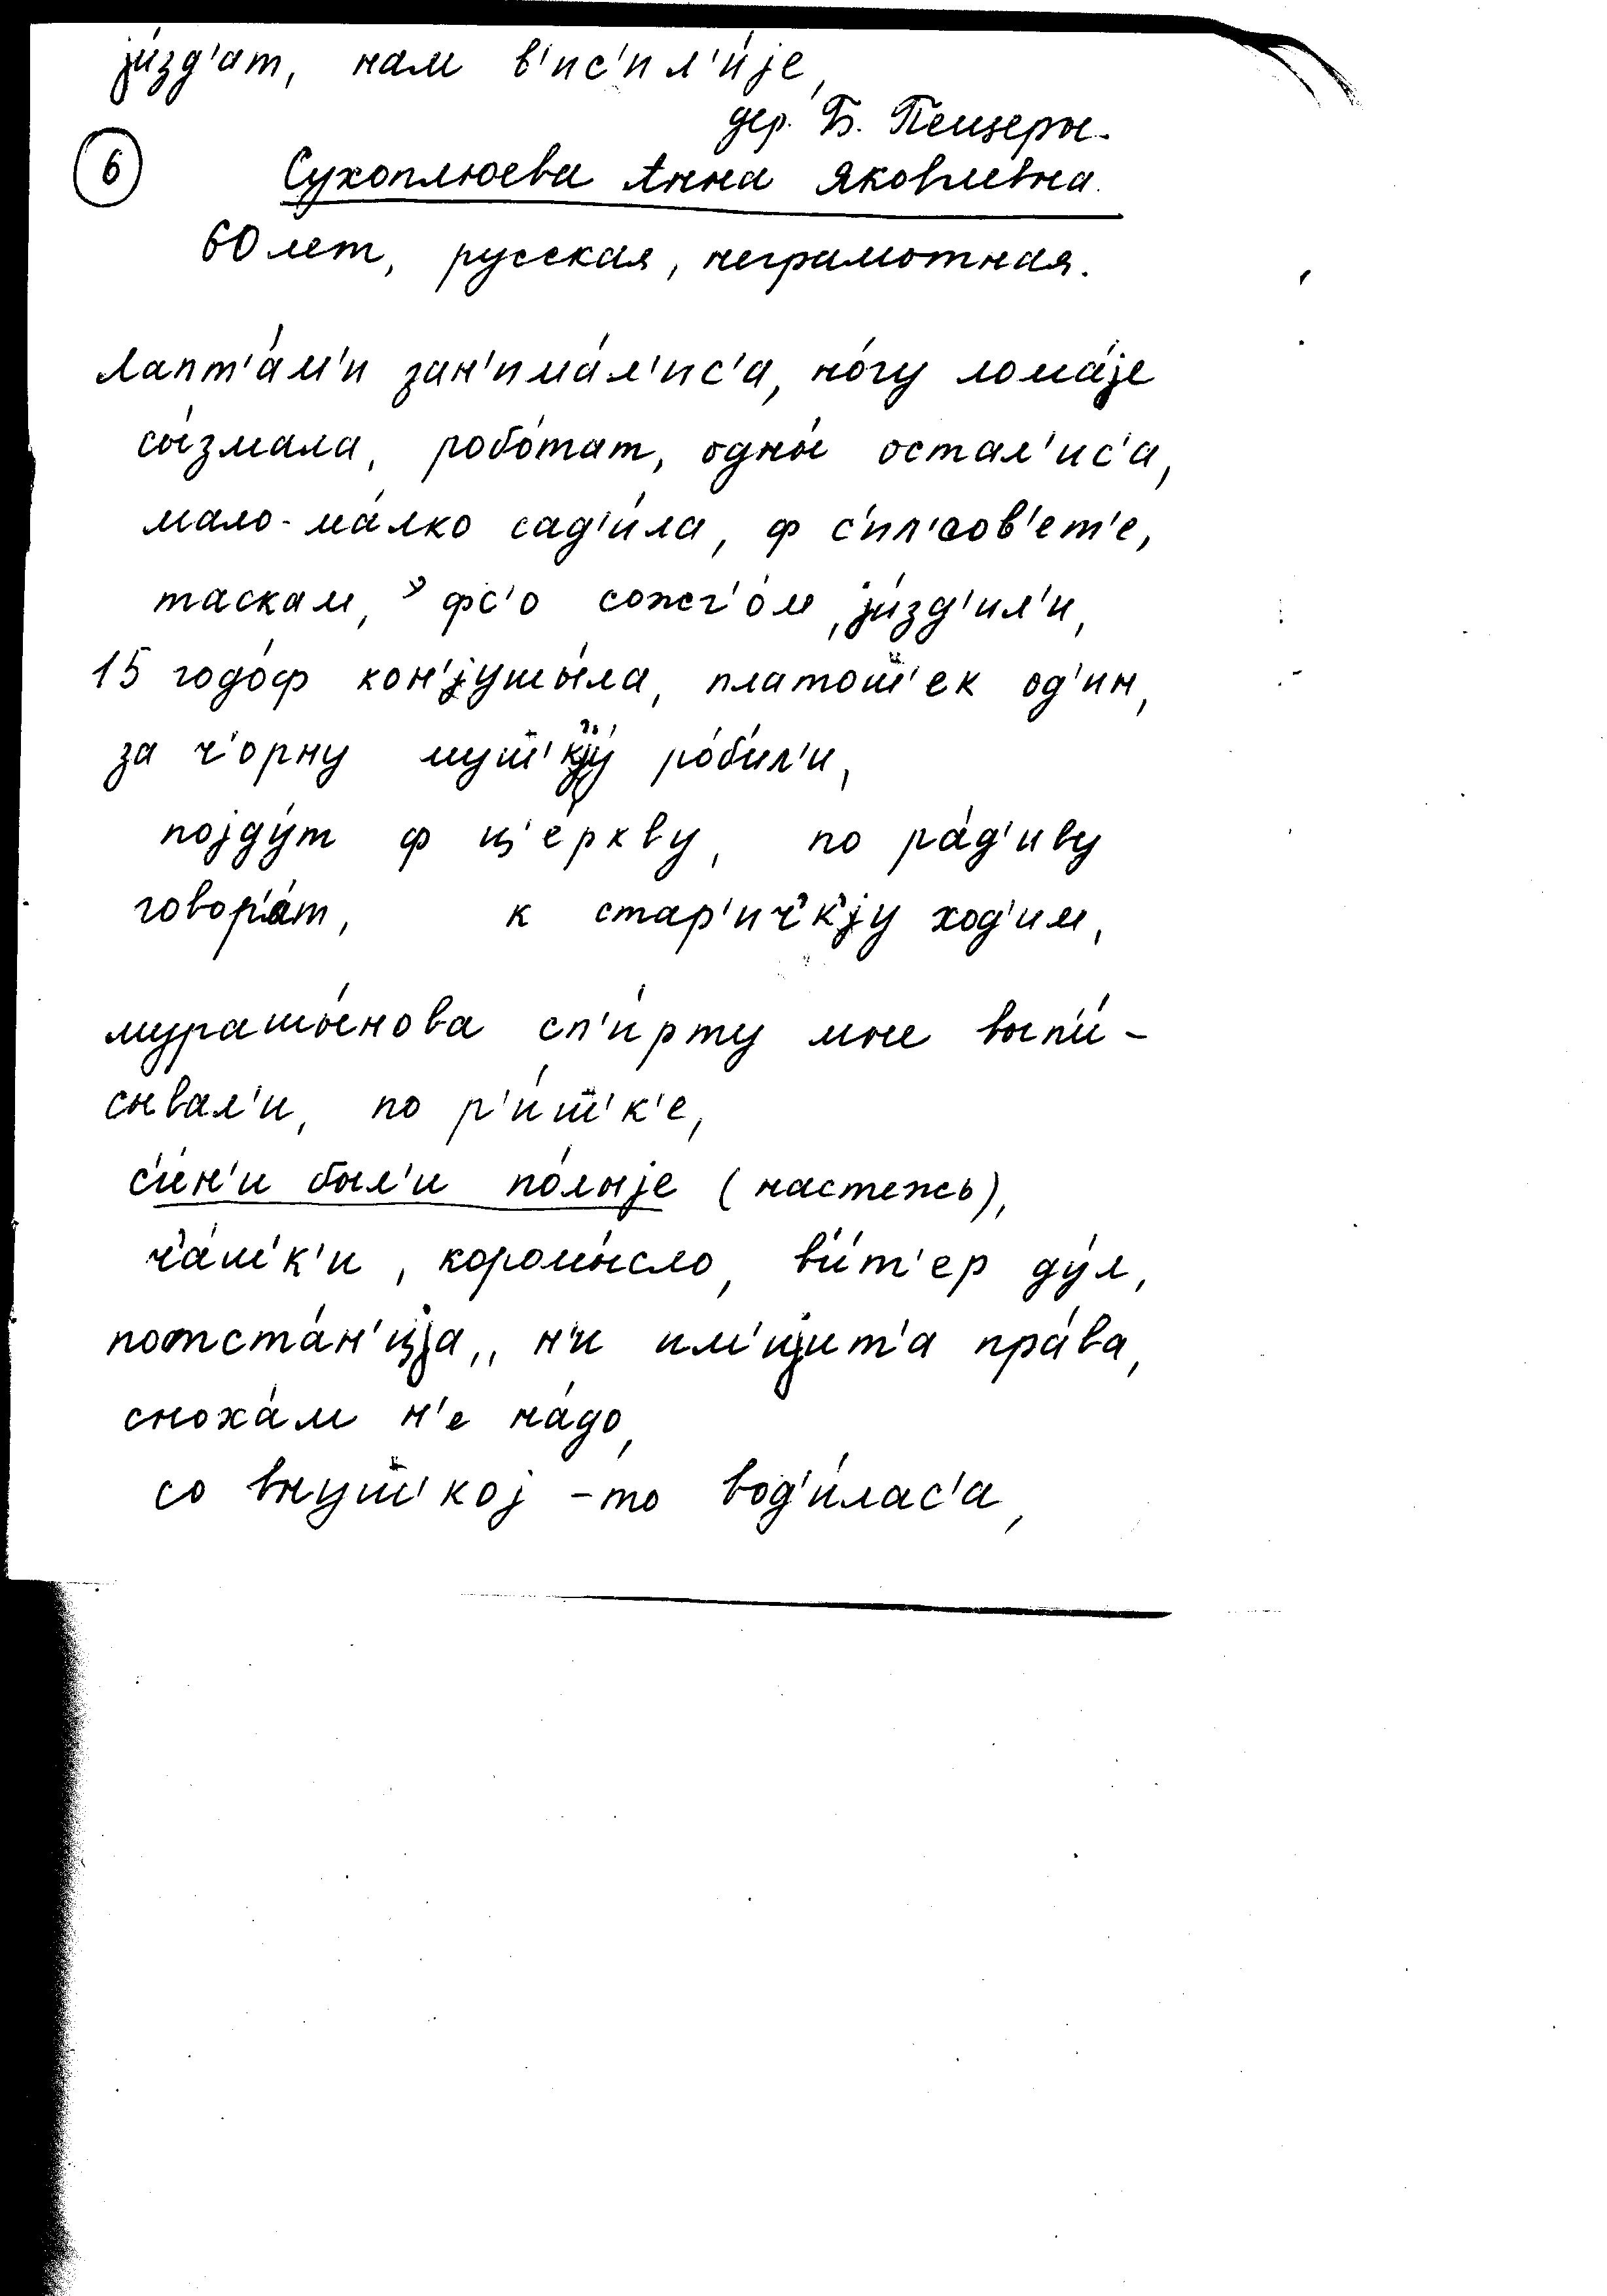 jи́зд'ат, нам в'ис'ил'и́jе,
дер. Б. Пещеры.
6 Сухоплюева Анна Яковлевна.
60 лет, русская, неграмотная.
Лапт'а́м'и зан'има́л'ис'а, но́гу лома́jе
сы́змала, робо́тат, одны́ остал'ис'а,
мало-ма́лко сад'и́ла, ф с'ил'сов'ет'е,
таскам, фс'о сожг'о́м, jи́зд'ил'и,
15 годо́ф кон'jушы́ла, платош'ек од'ин,
за ч'орну муш'кjу́ ро́бил'и,
поjду́т ф ц'е́ркву, по ра́д'иву
говор'а́т, к стар'ич'к'jу ход'им,
мурашы́нова сп'и́рту мне вып'и́-
сывал'и, по р'и́ш'к'е,
с'и́н'и был'и по́лыjе (настежь),
ча́ш'к'и, коромы́сло, в'и́т'ер ду́л,
потста́н'цjа,, н'и им'иjит'а пра́ва,
сноха́м н'е на́до,
со внуш'коj -то вод'и́лас'а,